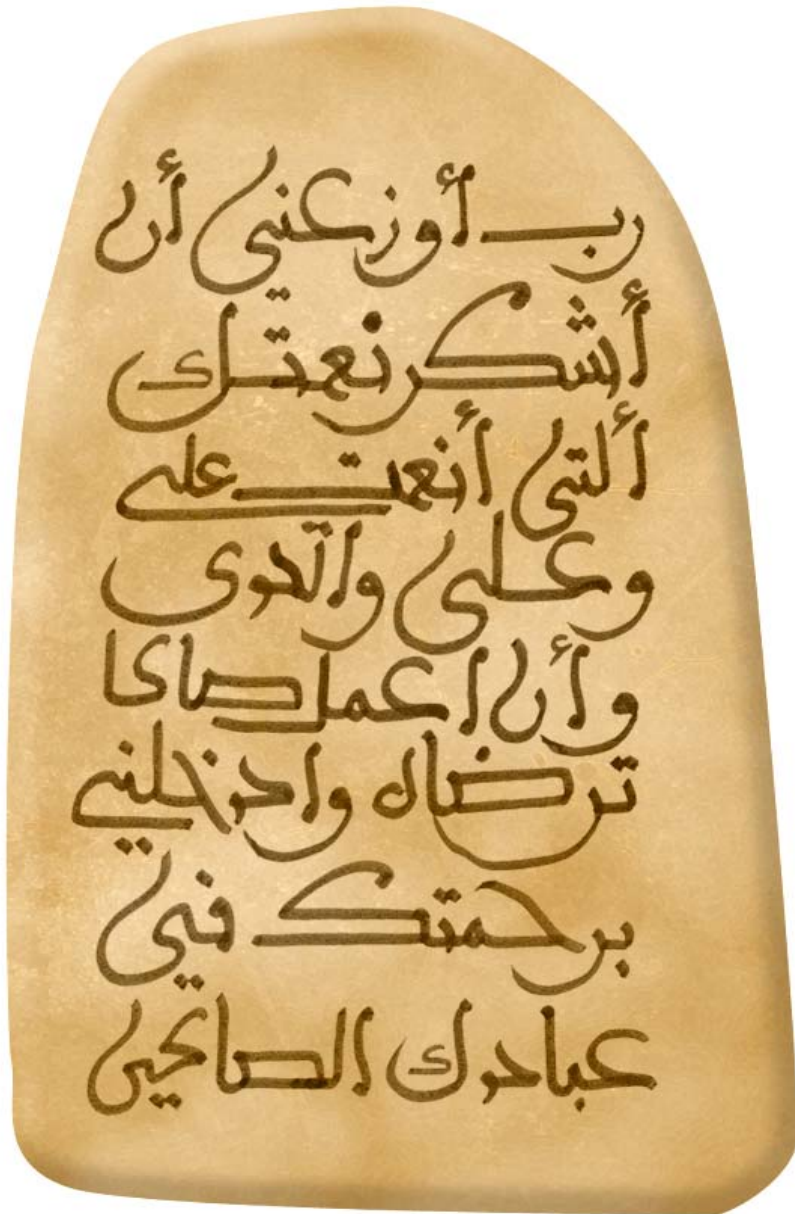 رب أوزعني أن
أشكر نعمتك
ألتي أنعمت علي
وعلى والدي
وأن اعمل صالحا
ترضاه وادخلني
برحمتك في
عبادك الصالحين